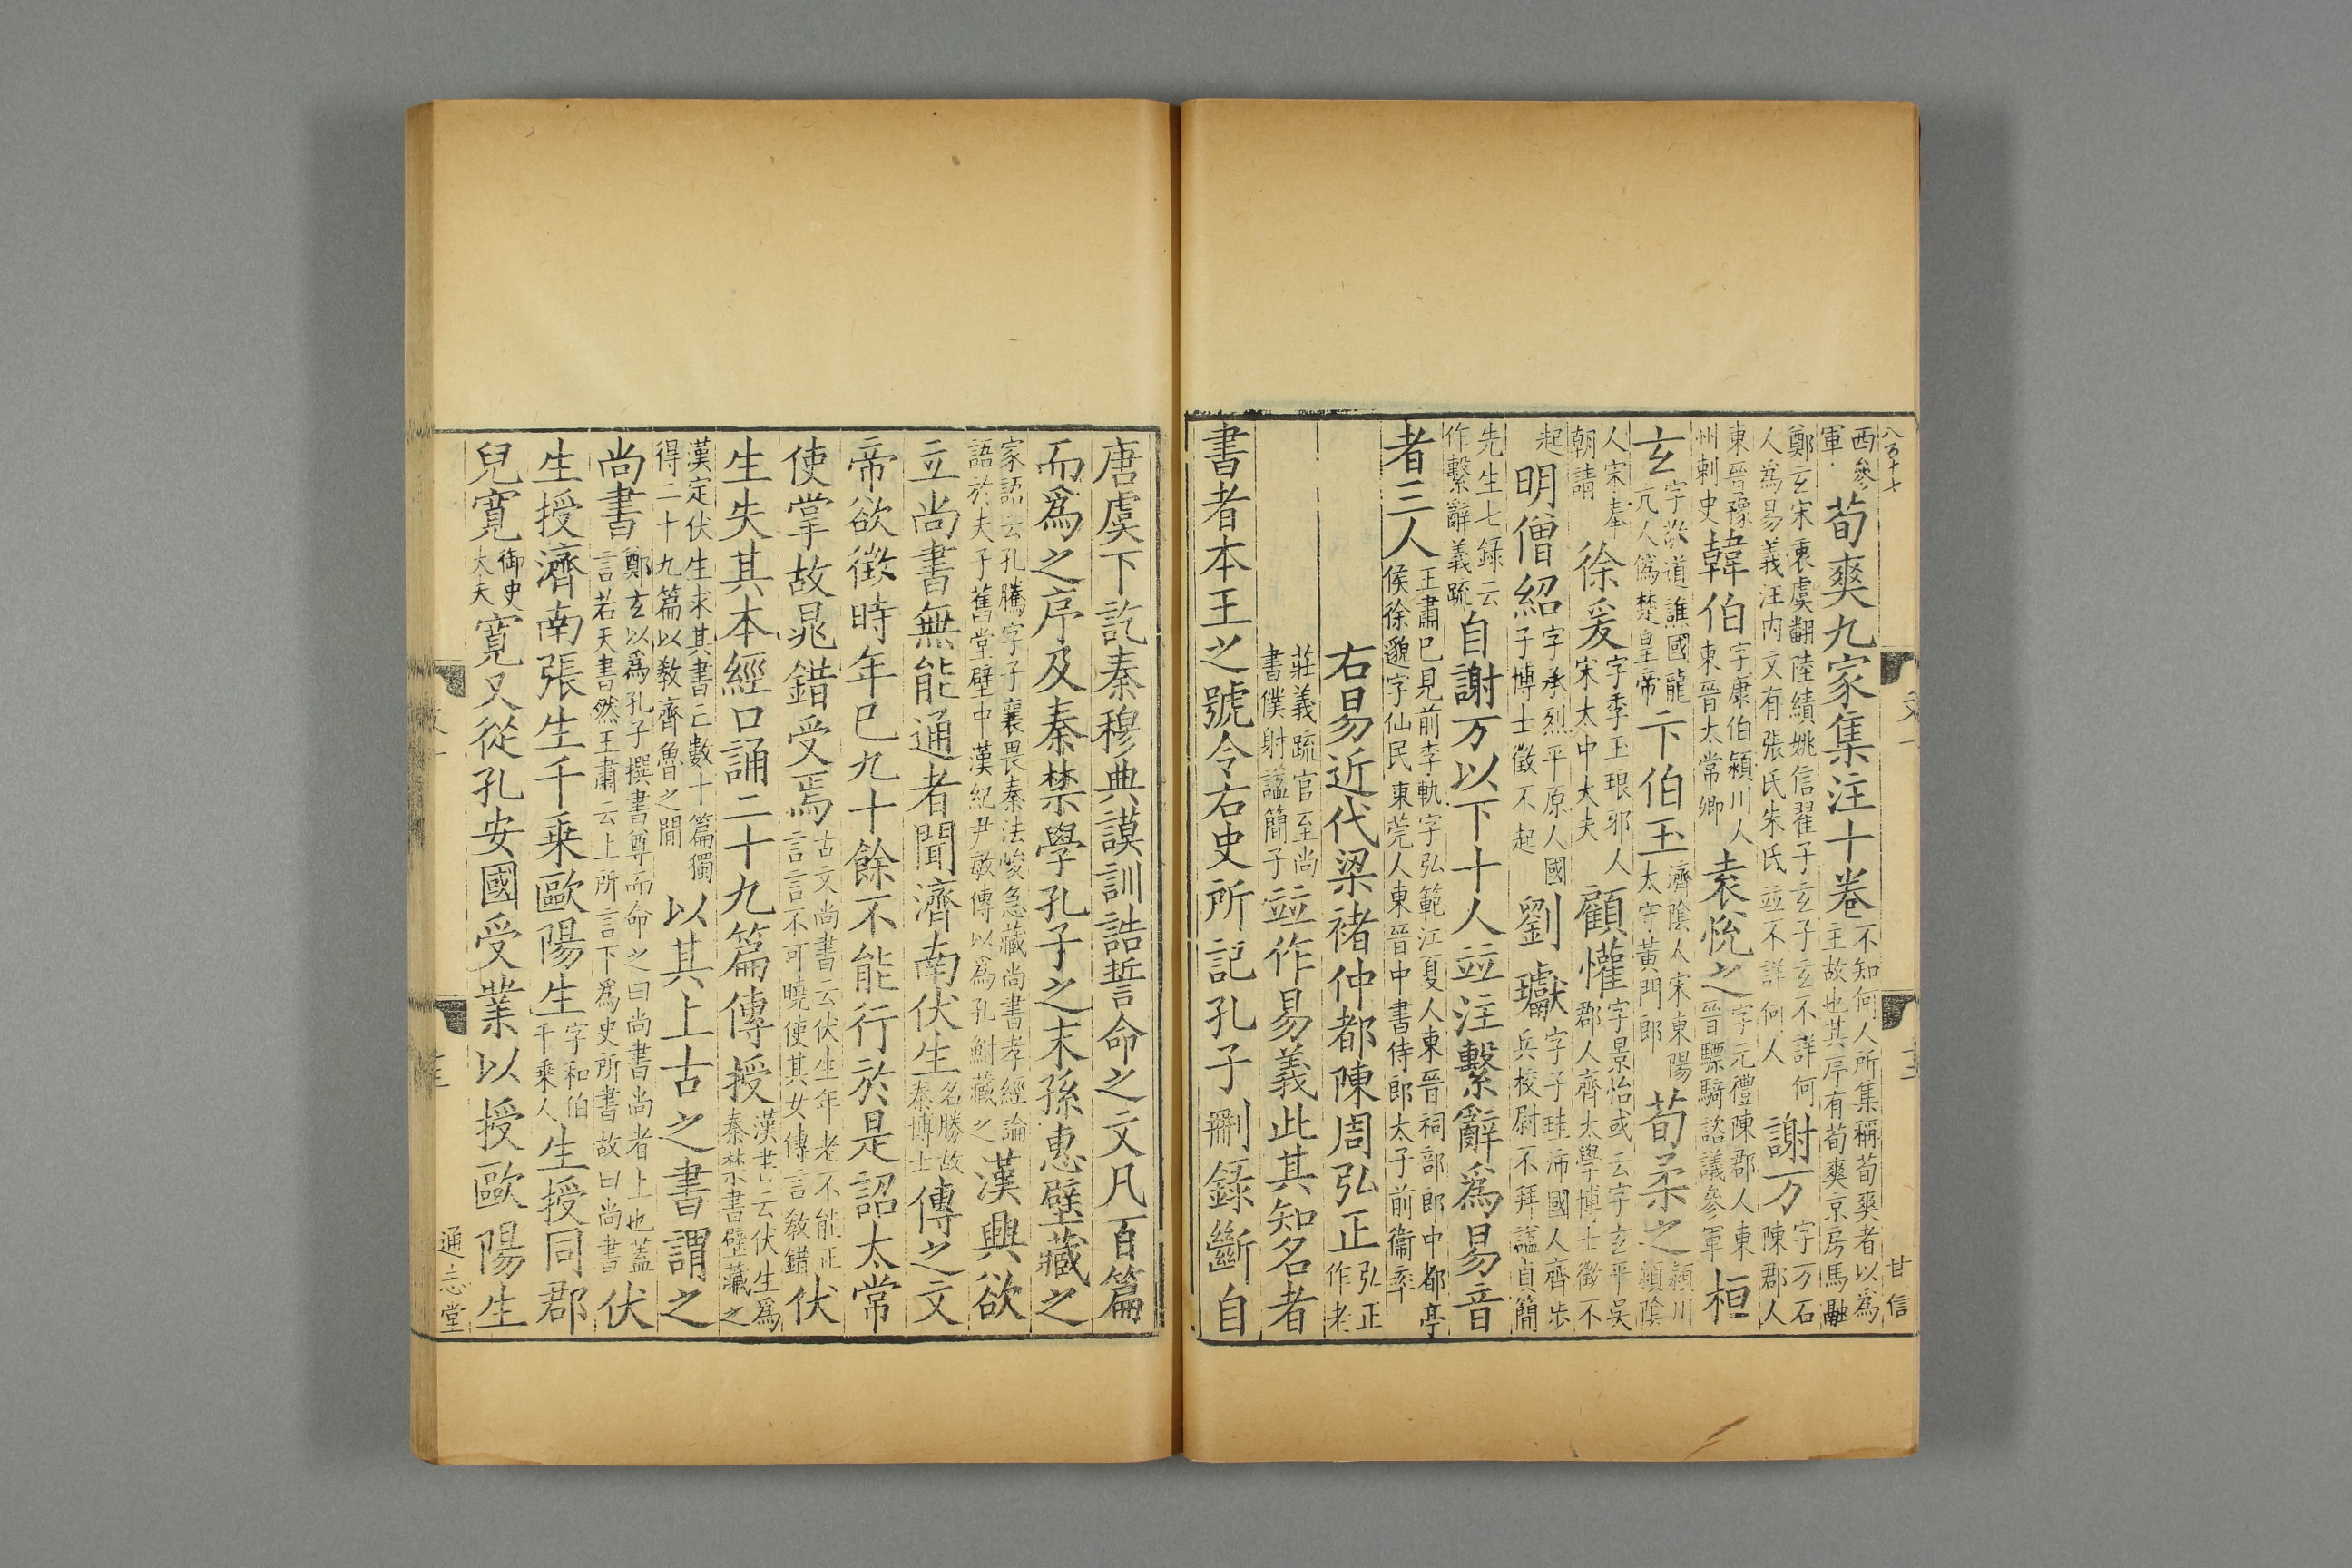 八百十七
甘信
西參
軍
荀爽九家集注十卷
不知何人所集稱荀爽者以爲
主故也其序有荀爽京房馬融
鄭玄宋衷虞翻陸績姚信翟子玄子玄不詳何
人爲易義注内又有張氏朱氏竝不詳何人
謝万
字万石
陳郡人
東晉豫
州刺史
韓伯
字康伯潁川人
東晉太常卿
袁悅之
字元禮陳郡人東
晉驃騎諮議參軍
桓
玄
字敬道譙國龍
亢人僞楚皇帝
卞伯玉
濟陰人宋東陽
太守黃門郎
荀柔之
潁川
潁陰
人宋奉
朝請
徐爰
字季玉琅邪人
宋太中大夫
顧懽
字景怡或云字玄平吳
郡人齊太學博士徵不
起
明僧紹
字承烈平原人國
子博士徵不起
劉瓛
字子珪沛國人齊步
兵校尉不拜謚貞簡
先生七録云
作繫辭義疏
自謝万以下十人竝注繫辭爲易音
者三人
王肅已見前李軌字弘範江夏人東晉祠部郎中都亭
侯徐邈字仙民東莞人東晉中書侍郎太子前衞率
右易近代梁褚仲都陳周弘正
弘正
作老
莊義疏官至尚
書僕射謚簡子
竝作易義此其知名者
書者本王之號令右史所記孔子刪録斷自
唐虞下訖秦穆典謨訓誥誓命之文凡百篇
而爲之序及秦禁學孔子之末孫惠壁藏之
家語云孔騰字子襄畏秦法峻急藏尚書孝經論
語於夫子舊堂壁中漢紀尹敏傳以爲孔鮒藏之
漢興欲
立尚書無能通者聞濟南伏生
名勝故
秦博士
傳之文
帝欲徵時年已九十餘不能行於是詔太常
使掌故晁錯受焉
古文尚書云伏生年老不能正
言言不可曉使其女傳言敎錯
伏
生失其本經口誦二十九篇傳授
漢書云伏生爲
秦禁書壁藏之
漢定伏生求其書亡數十篇獨
得二十九篇以敎齊魯之閒
以其上古之書謂之
尚書
鄭玄以爲孔子撰書尊而命之曰尚書尚者上也蓋
言若天書然王肅云上所言下爲史所書故曰尚書
伏
生授濟南張生千乘歐陽生
字和伯
千乘人
生授同郡
兒寬
御史
大夫
寬又從孔安國受業以授歐陽生
通志堂